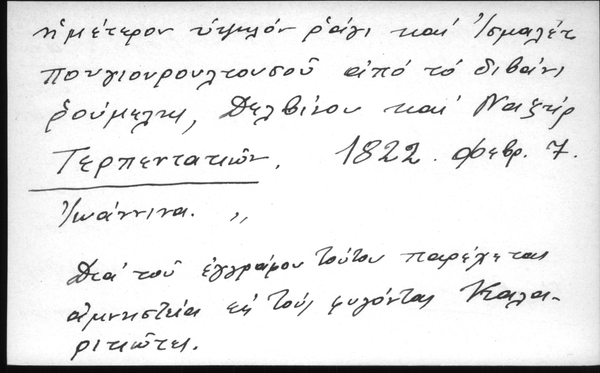 ἡμέτερον ὑψηλόν ράγι καί Ἰσμαλέτ
πουγιουρουλτουσοῦ ἀπό τό διβάνι
ῥούμελης, Δελβίνου καί Ναζήρ
Τερπεντατιῶν, 1822. φεβρ. 7.
Ἰωάννινα. ,,
Διά τοῦ ἐγγράφου τούτου παρέχεται
ἀμνηστεία εἰς τούς φυγόντας Καλα-
ριτιῶτες.